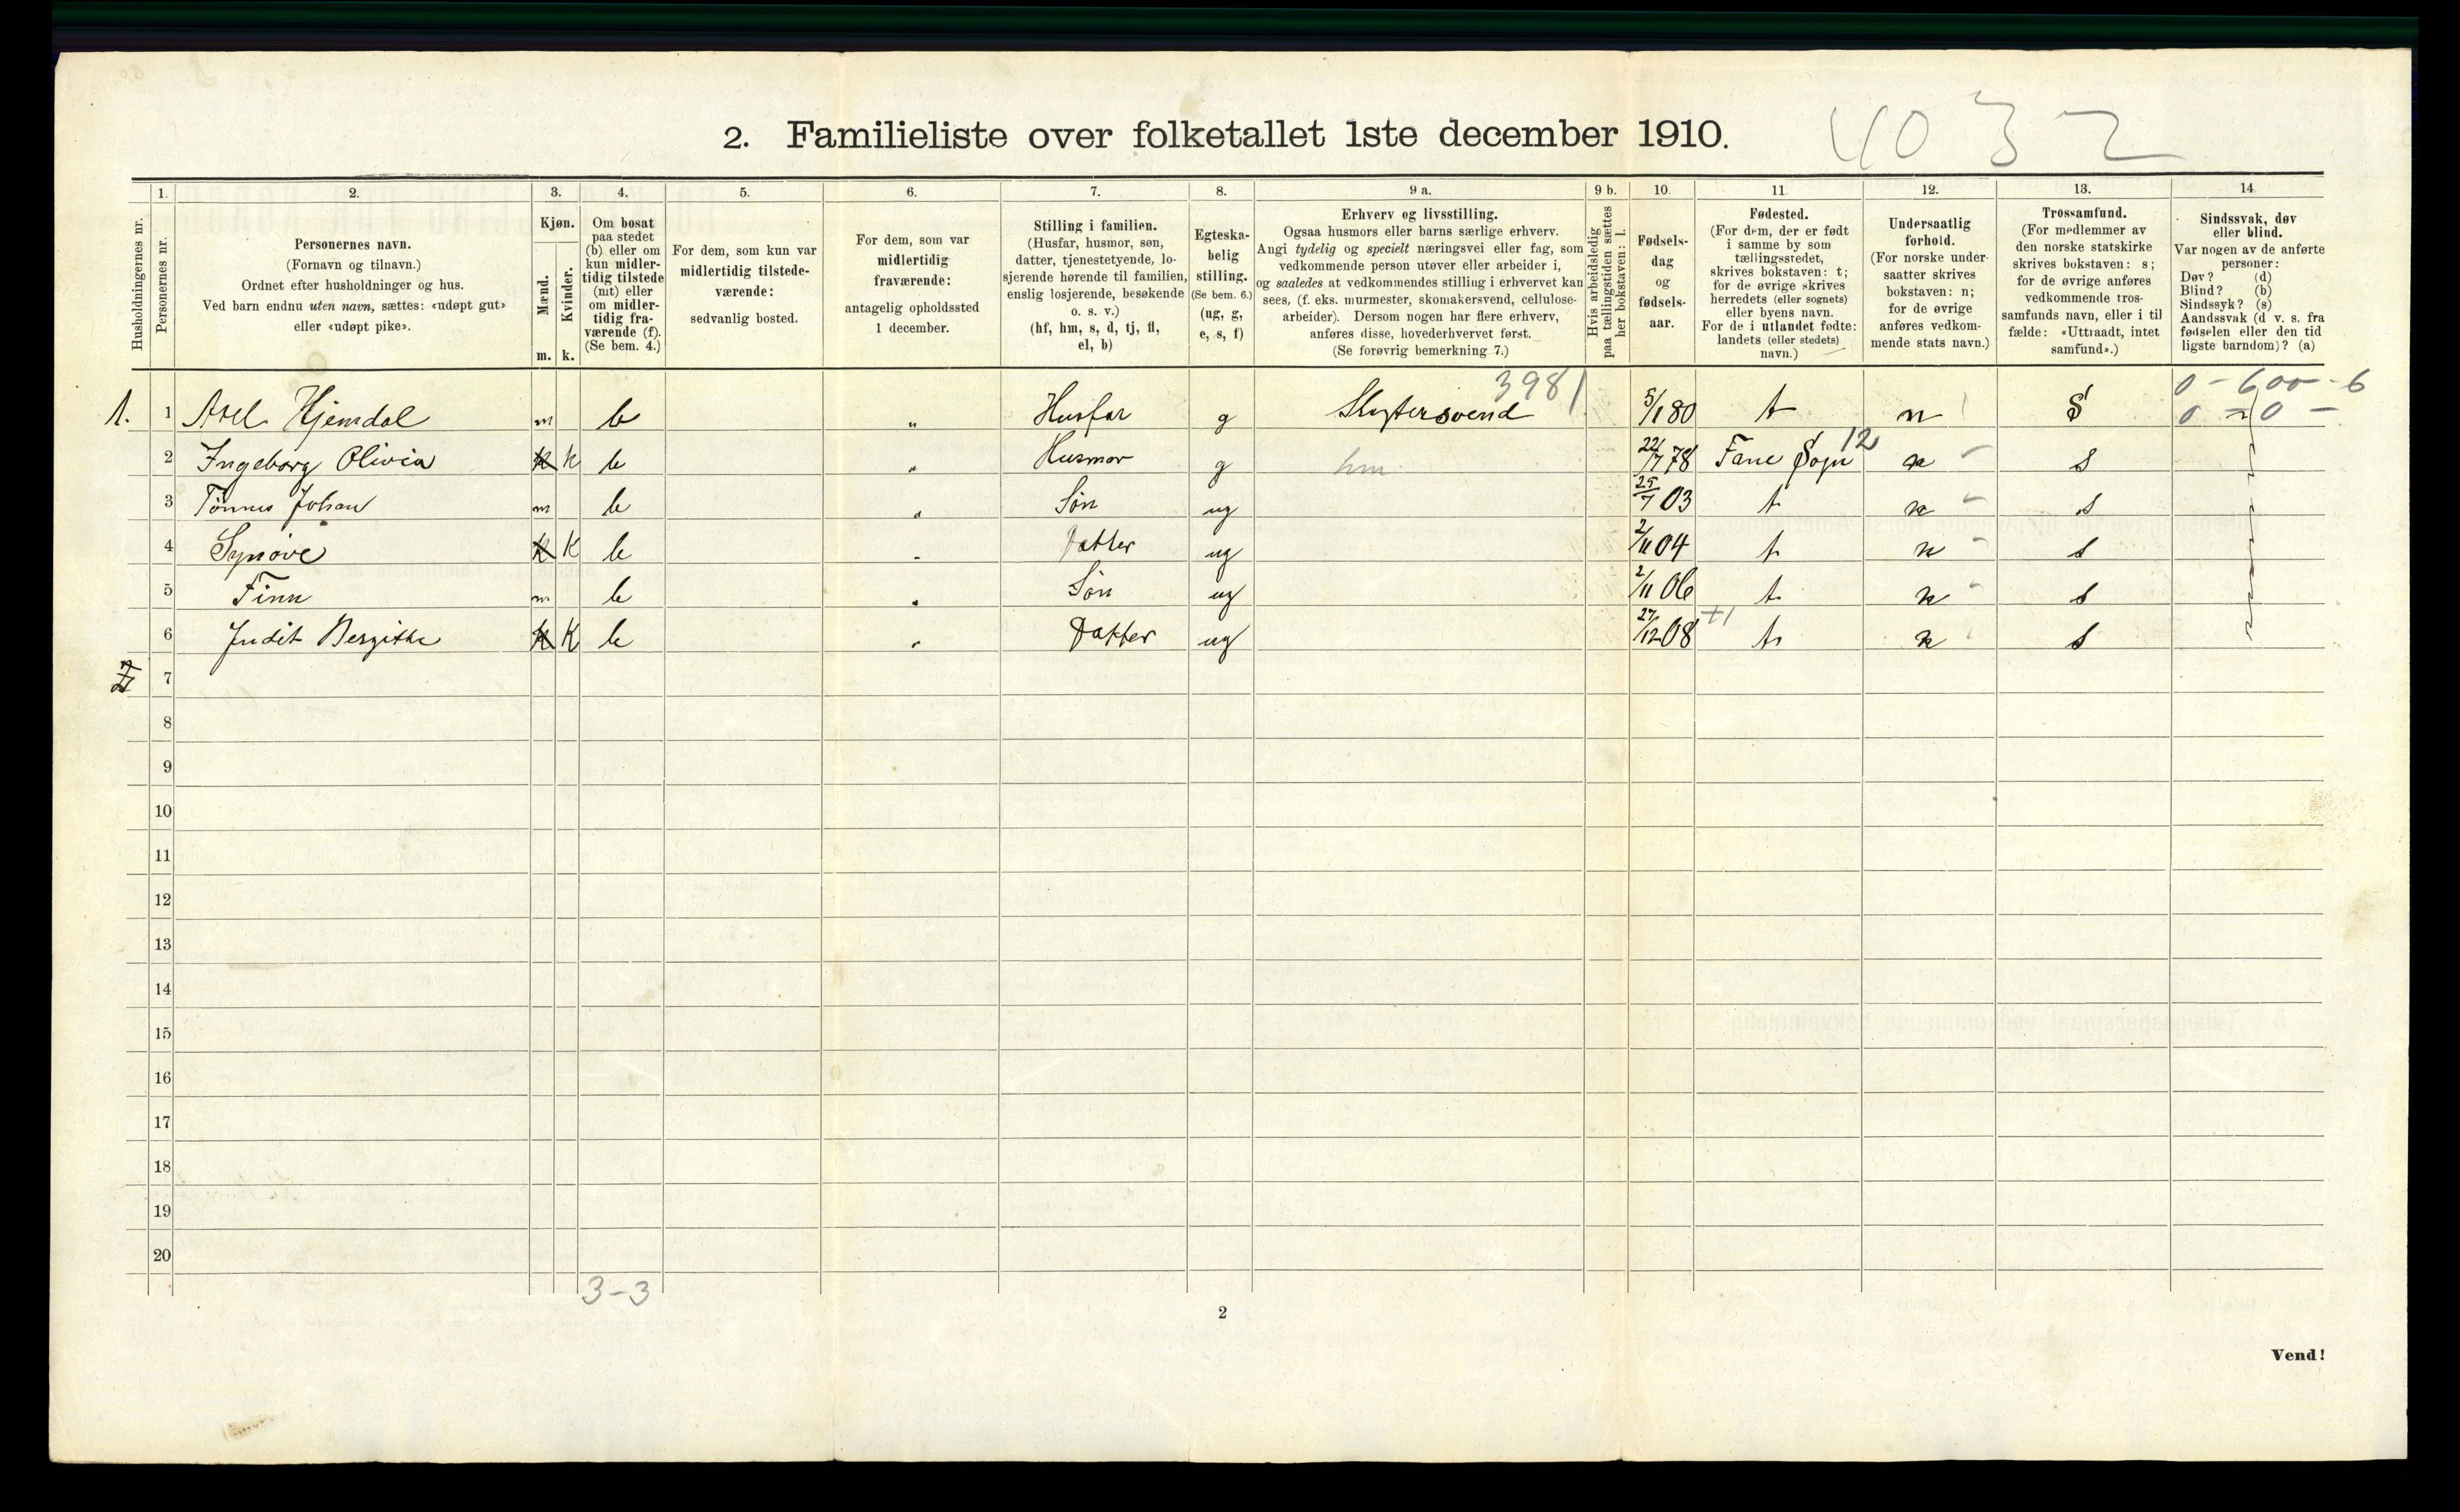 2. Familieliste over folketallet 1ste december 1910.
4032
1. 2. 3. 4. 5. 6. 7. 8. 9 a. 9 b. 10. 11. 12. 13. 14.
Husholdningernes nr.
Personernes nr.
Personernes navn.
(Fornavn og tilnavn.)
Ordnet efter husholdninger og hus.
Ved barn endnu uten navn, sættes: «udøpt gut»
eller «udøpt pike».
Kjøn.
Mænd.
Kvinder.
m. k.
Om bosat
paa stedet
(b) eller om
kun midler-
tidig tilstede
(mt) eller
om midler-
tidig fra-
værende (f).
(Se bem. 4.)
For dem, som kun var
midlertidig tilstede-
værende:
sedvanlig bosted.
For dem, som var
midlertidig
fraværende:
antagelig opholdssted
1 december.
Stilling i familien.
(Husfar, husmor, søn,
datter, tjenestetyende, lo-
sjerende hørende til familien,
enslig losjerende, besøkende
o. s. v.)
(hf, hm, s, d, tj, fl,
el, b)
Egteska-
belig
stilling.
(Se bem. 6.)
(ug, g,
e, s, f)
Erhverv og livsstilling.
Ogsaa husmors eller barns særlige erhverv.
Angi tydelig og specielt næringsvei eller fag, som
vedkommende person utøver eller arbeider i,
og saaledes at vedkommendes stilling i erhvervet kan
sees, (f. eks. murmester, skomakersvend, cellulose-
arbeider). Dersom nogen har flere erhverv,
anføres disse, hovederhvervet først.
(Se forøvrig bemerkning 7.)
Hvis arbeidsledig
paa tællingstiden sættes
her bokstaven: l.
Fødsels-
dag
og
fødsels-
aar.
Fødested.
(For dem, der er født
i samme by som
tællingsstedet,
skrives bokstaven: t;
for de øvrige skrives
herredets (eller sognets)
eller byens navn.
For de i utlandet fødte:
landets (eller stedets)
navn.)
Undersaatlig
forhold.
(For norske under-
saatter skrives
bokstaven: n;
for de øvrige
anføres vedkom-
mende stats navn.)
Trossamfund.
(For medlemmer av
den norske statskirke
skrives bokstaven: s;
for de øvrige anføres
vedkommende tros-
samfunds navn, eller i til
fælde: «Uttraadt, intet
samfund».)
Sindssvak, døv
eller blind.
Var nogen av de anførte
personer:
Døv? (d)
Blind? (b)
Sindssyk? (s)
Aandssvak (d v. s. fra
fødselen eller den tid
ligste barndom)? (a)
3981 0-600-6
1. 1 Axel Hjemdal m b " Husfar g Slagtersvend 5/1 80 t n S 0 0 -
2 Ingeborg Olivia k b " Husmor g hm 22/7 78 Fane Sogn 12 n s
3 Tönnes Johan m b " Søn ug 25/7 03 t n s
4 Synöve K b " Datter ug 2/11 04 t n s
5 Finn m b " Søn ug 2/11 06 t n s
6 Judit Bergithe K b " Datter ug 27/12 08 +1 t n s
7
8
9
10
11
12
13
14
15
16
17
18
19
20
3-3
2
Vend!